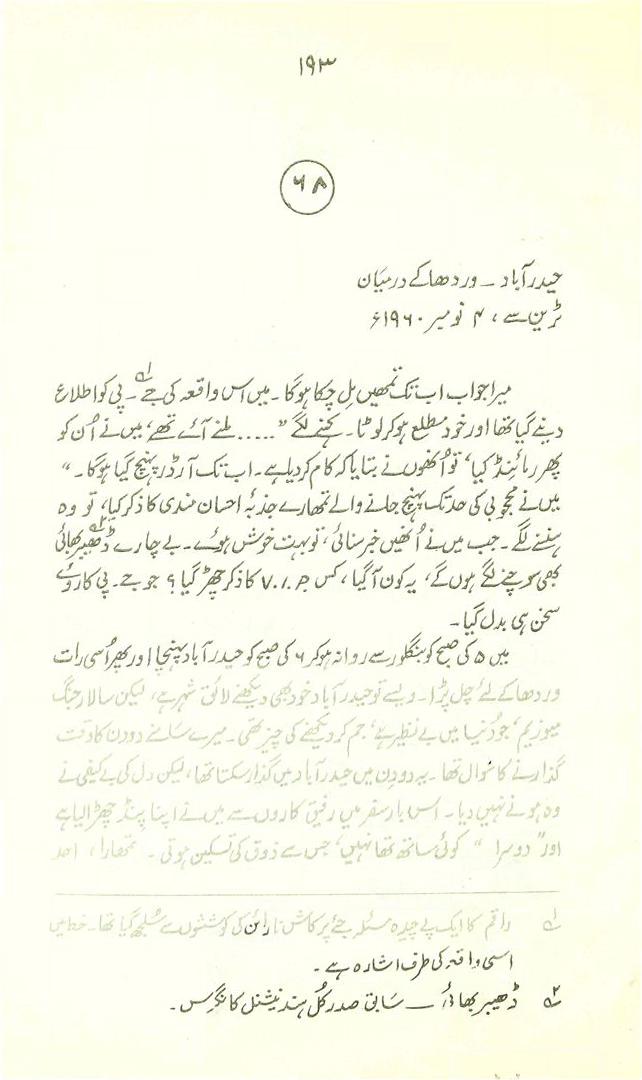 ۱۹۳
۶۸
حیدرآباد ۔ وردھا کے درمیان
ٹرین سے، ۴ نومبر ۱۹۶۰ء
میرا جواب اب تک تمھیں مِل چکا ہوگا ۔ میں اس واقعہ کی جے ۔ پی کو اطلاع
دینے گیا تھا اور خود مطلع ہوکر لوٹا ۔ کہنے لگے "..... ملنے آئے تھے، میں نے اُن کو
پھر ریمائنڈ کیا، تو اُنھوں نے بتایا کہ کام کردیا ہے ۔ اب تک آرڈر پہنچ گیا ہوگا ۔"
میں نے مجوبی کی حد تک پہنچ جانے والے تمھارے جذبۂ احسان مندی کا ذکر کیا، تو وہ
ہنسنے لگے ۔ جب میں نے اُنھیں خبر سنائی، تو بہت خوش ہوئے ۔ بے چارے ڈھیبر بھائی
کبھی سوچنے لگے ہوں گے، یہ کون آگیا، کس کا ذکر چھڑ گیا؟ جو جے ۔ پی کا روئے
سخن ہی بدل گیا ۔
میں ۵ کی صبح کو بنگلور سے روانہ ہوکر ۶ کی صبح کو حیدرآباد پہنچا اور پھر اُسی رات
وردھا کے لئے چل پڑا ۔ ویسے تو حیدرآباد خود بھی دیکھنے لائق شہر ہے، لیکن سالار جنگ
میوزیم، جو دُنیا میں بے نظیر ہے، جم کر دیکھنے کی چیز تھی ۔ میرے سامنے دو دن کا وقت
گذارنے کا سوال تھا ۔ یہ دو دِن میں حیدرآباد میں گذار سکتا تھا، لیکن دل کی بے کیفی نے
وہ ہونے نہیں دیا ۔ اس بار سفر میں رفیق کاروں سے میں نے اپنا پنڈ چھڑا لیا ہے
اور "دوسرا" کوئی ساتھ تھا نہیں، جس سے ذوق کی تسکین ہوتی ۔ تمھارا، احد
۱؎ راقم کا ایک پے چیدہ مسئلہ جئے پرکاش نارائن کی کوششوں سے سُلجھ گیا تھا ۔ خط میں
اسی واقعہ کی طرف اشارہ ہے ۔
۲؎ ڈھیبر بھائی ۔ سابق صدر کُل ہند نیشنل کانگرس ۔